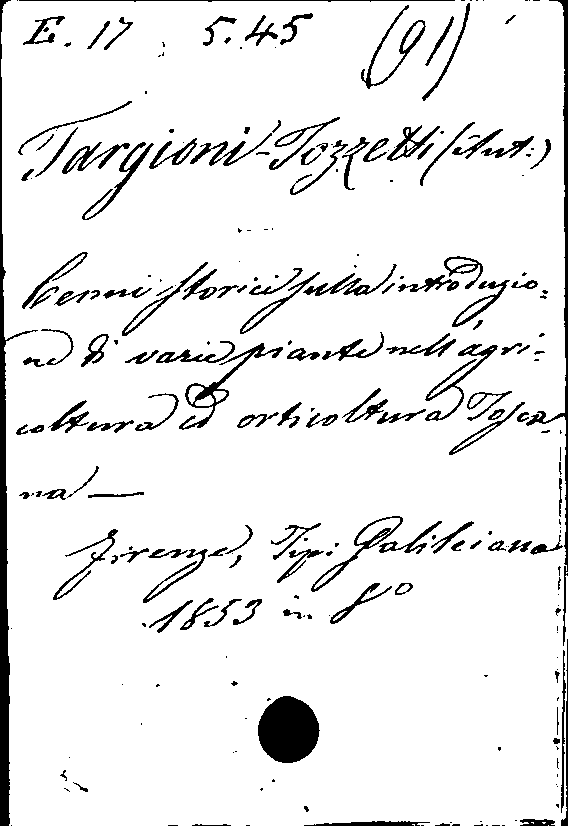 E. 17 5.45 (91)
Targioni-Tozzetti (Ant:)
Cenni storici sulla introduzio=
ne di varie piante nell'agri=
coltura ed orticoltura Tosca=
na —
Firenze, Tip: Galileiana
1853 in 8º